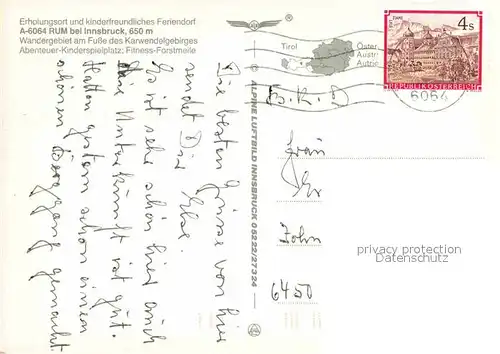 Erholungsort und kinderfreundliches Feriendorf
A-6064 RUM bei Innsbruck, 650 m
Wandergebiet am Fuße des Karwendelgebirges
Abenteuer-Kinderspielplatz; Fitness-Forstmeile
Tirol
Öster
Austri
Autric
4s
REPUBLIK ÖSTERREICH
6064
© ALPINE LUFTBILD INNSBRUCK 05222/27324
Die besten Grüsse von hier
sendet Dir Else.
Es ist sehr schön hier auch
die Unterkunft ist gut.
Hatten gestern schon einen
schönen Berggang gemacht
Frau
6450
privacy protection
Datenschutz